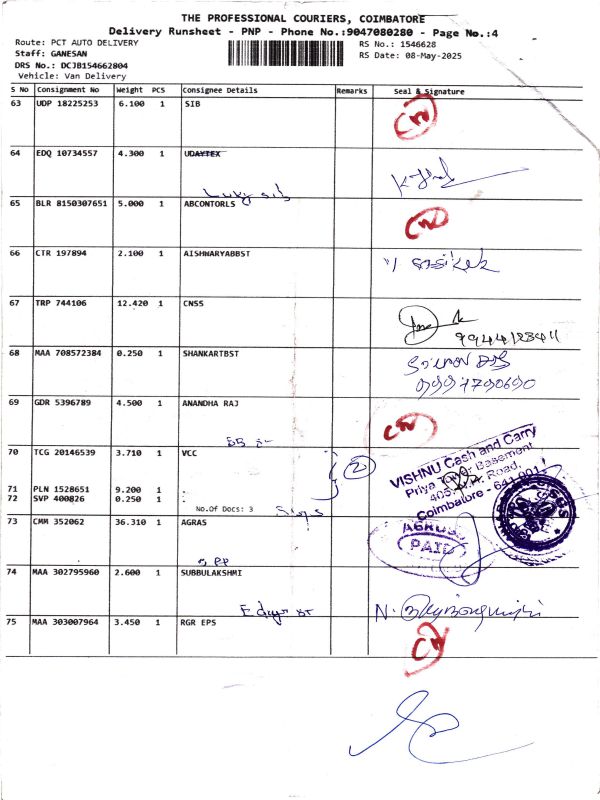 THE PROFESSIONAL COURIERS, COIMBATORE
Delivery Runsheet - PNP - Phone No.:9047080280 - Page No.:4
Route: PCT AUTO DELIVERY
RS No.: 1546628
Staff: GANESAN
RS Date: 08-May-2025
DRS No.: DCJB154662804
Vehicle: Van Delivery
S No Consignment No Weight PCS Consignee Details Remarks Seal & Signature
63 UDP 18225253 6.100 1 SIB
64 EDQ 10734557 4.300 1 UDAYTEX
65 BLR 8150307651 5.000 1 ABCONTORLS
66 CTR 197894 2.100 1 AISHWARYABBST
67 TRP 744106 12.420 1 CNSS
9944123411
68 MAA 708572384 0.250 1 SHANKARTBST
69 GDR 5396789 4.500 1 ANANDHA RAJ
70 TCG 20146539 3.710 1 VCC
2
VISHNU Cash and Carry
Priya Tower Basement
Road,
Coimbatore - 641 001
71 PLN 1528651 9.200 1 .
72 SVP 400826 0.250 1 .
No.Of Docs: 3
73 CMM 352062 36.310 1 AGRAS
PAID
74 MAA 302795960 2.600 1 SUBBULAKSHMI
75 MAA 303007964 3.450 1 RGR EPS